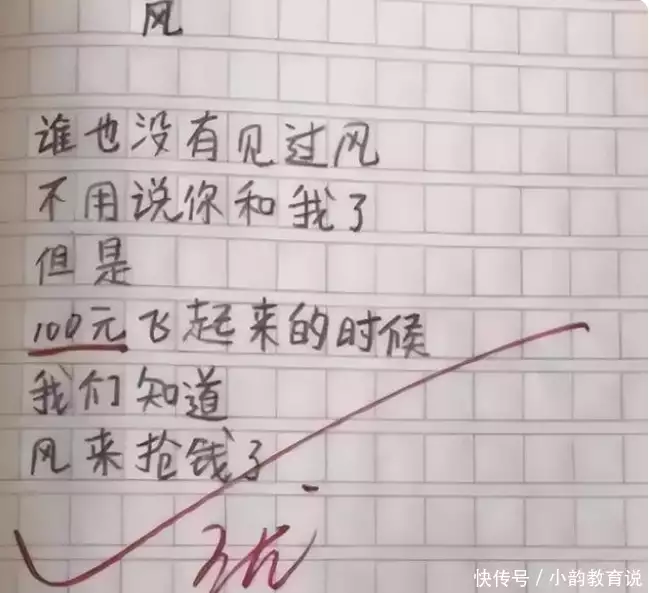 风
谁也没有见过风
不用说你和我了
但是
100元飞起来的时候
我们知道
风来抢钱了
优
快传号/小韵教育说